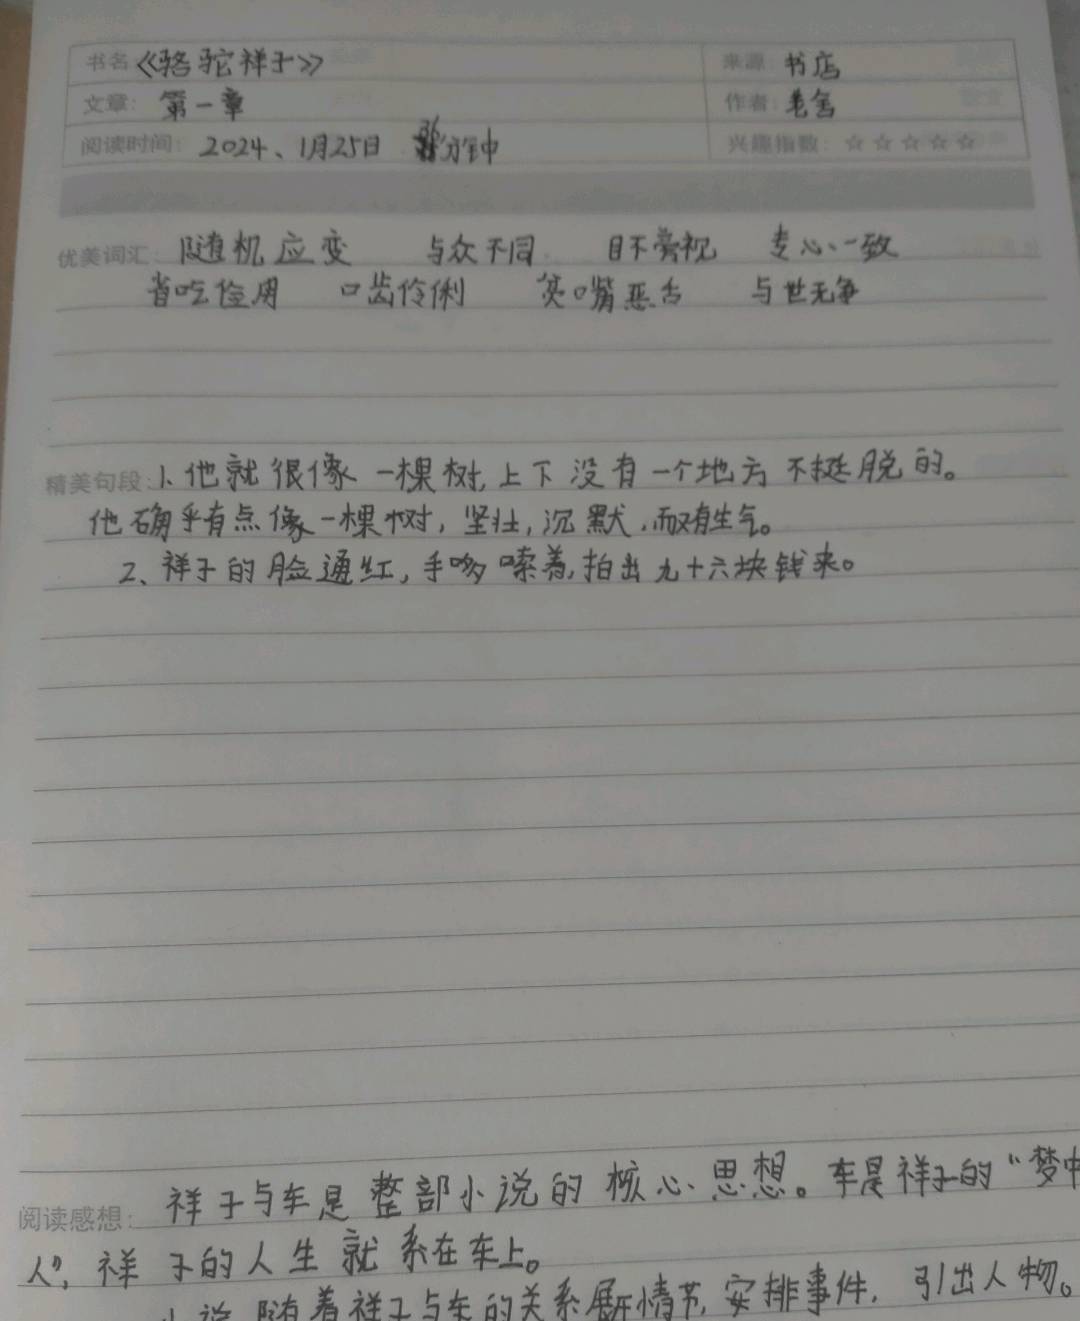 书名 《骆驼祥子》 来源: 书店
文章: 第一章 作者: 老舍
阅读时间: 2024、1月25日 36分钟 兴趣指数: ☆☆☆☆☆
优美词汇: 随机应变 与众不同 目不旁视 专心一致
省吃俭用 口齿伶俐 尖嘴恶舌 与世无争
精美句段: 1、他就很像一棵树,上下没有一个地方不挺脱的。
他确乎有点像一棵树,坚壮,沉默,而又有生气。
2、祥子的脸通红,手哆嗦着,拍出九十六块钱来。
阅读感想: 祥子与车是整部小说的核心思想。车是祥子的“梦中
人”,祥子的人生就系在车上。
小说随着祥子与车的关系展开情节,安排事件,引出人物。